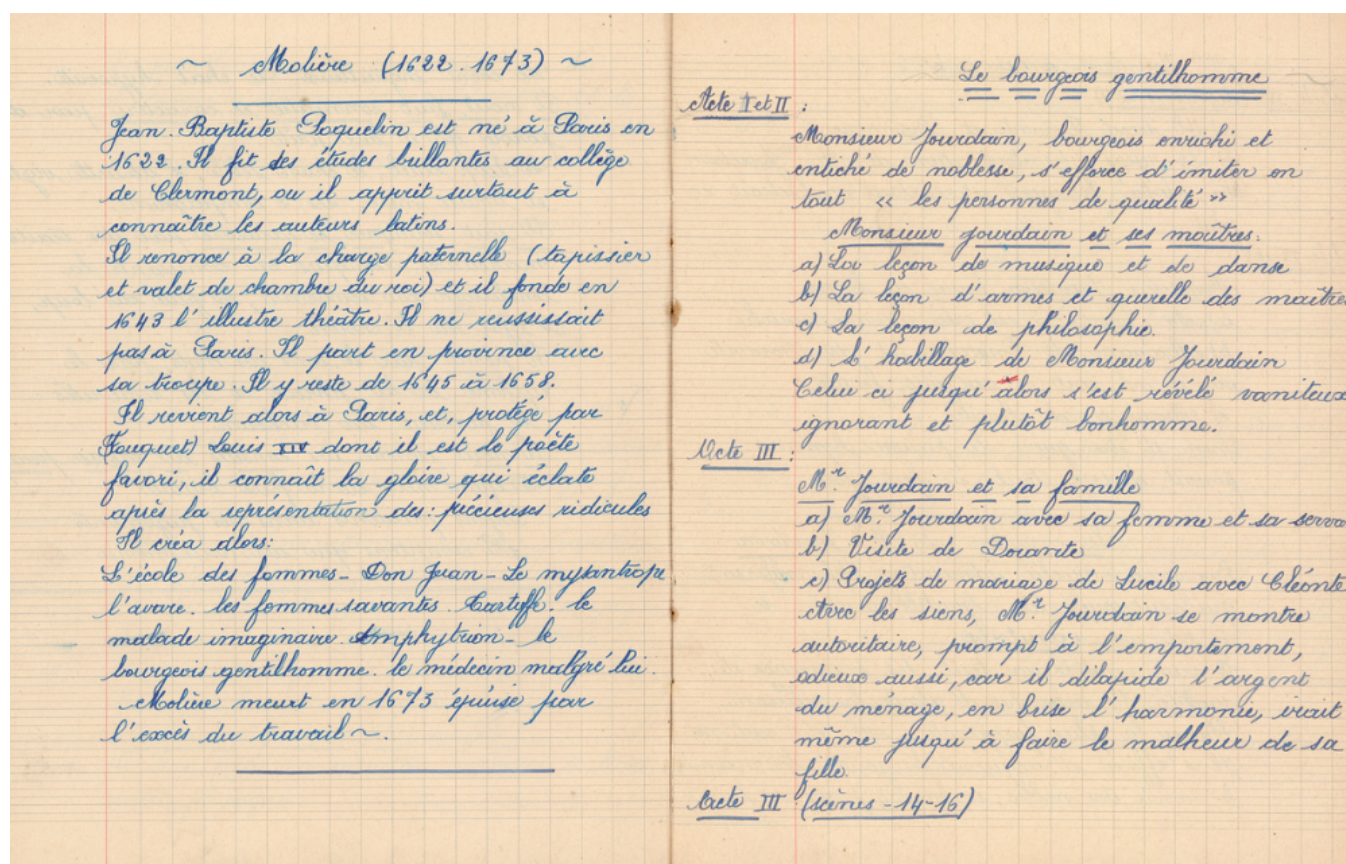 ~ Molière (1622.1673) ~
Jean.Baptiste Poquelin est né à Paris en
1622. Il fit des études brillantes au collège
de Clermont, ou il apprit surtout à
connaître les auteurs latins.
Il renonce à la charge paternelle (tapissier
et valet de chambre du roi) et il fonde en
1643 l'illustre théâtre. Il ne reussissait
pas à Paris. Il part en province avec
sa troupe. Il y reste de 1645 à 1658.
Il revient alors à Paris, et, protégé par
(Fouquet) Louis XIV dont il est le poète
favori, il connaît la gloire qui éclate
après la représentation des: précieuses ridicules
Il créa alors:
L'école des femmes - Don Juan - Le mysantrope
l'avare. les femmes savantes. Tartuffe. le
malade imaginaire. Amphytrion - le
bourgeois gentilhomme. le médecin malgré lui.
Molière meurt en 1673 épuise par
l'excès du travail ~.
Le bourgeois gentilhomme
Acte I et II :
Monsieur Jourdain, bourgeois enrichi et
entiché de noblesse, s'efforce d'imiter en
tout « les personnes de qualité »
Monsieur Jourdain et ses maîtres.
a) La leçon de musique et de danse
b) La leçon d'armes et querelle des maîtres
c) La leçon de philosophie.
d) L'habillage de Monsieur Jourdain
Celui ci jusqu'alors s'est révélé vaniteux
ignorant et plutôt bonhomme.
Acte III :
Mr. Jourdain et sa famille
a) Mr. Jourdain avec sa femme et sa serva
b) Visite de Dorante
c) Projets de mariage de Lucile avec Cléonte
Avec les siens, Mr. Jourdain se montre
autoritaire, prompt à l'emportement,
odieux aussi, car il dilapide l'argent
du ménage, en brise l'harmonie, irait
même jusqu'à faire le malheur de sa
fille.
Acte III (scènes - 14 - 16)